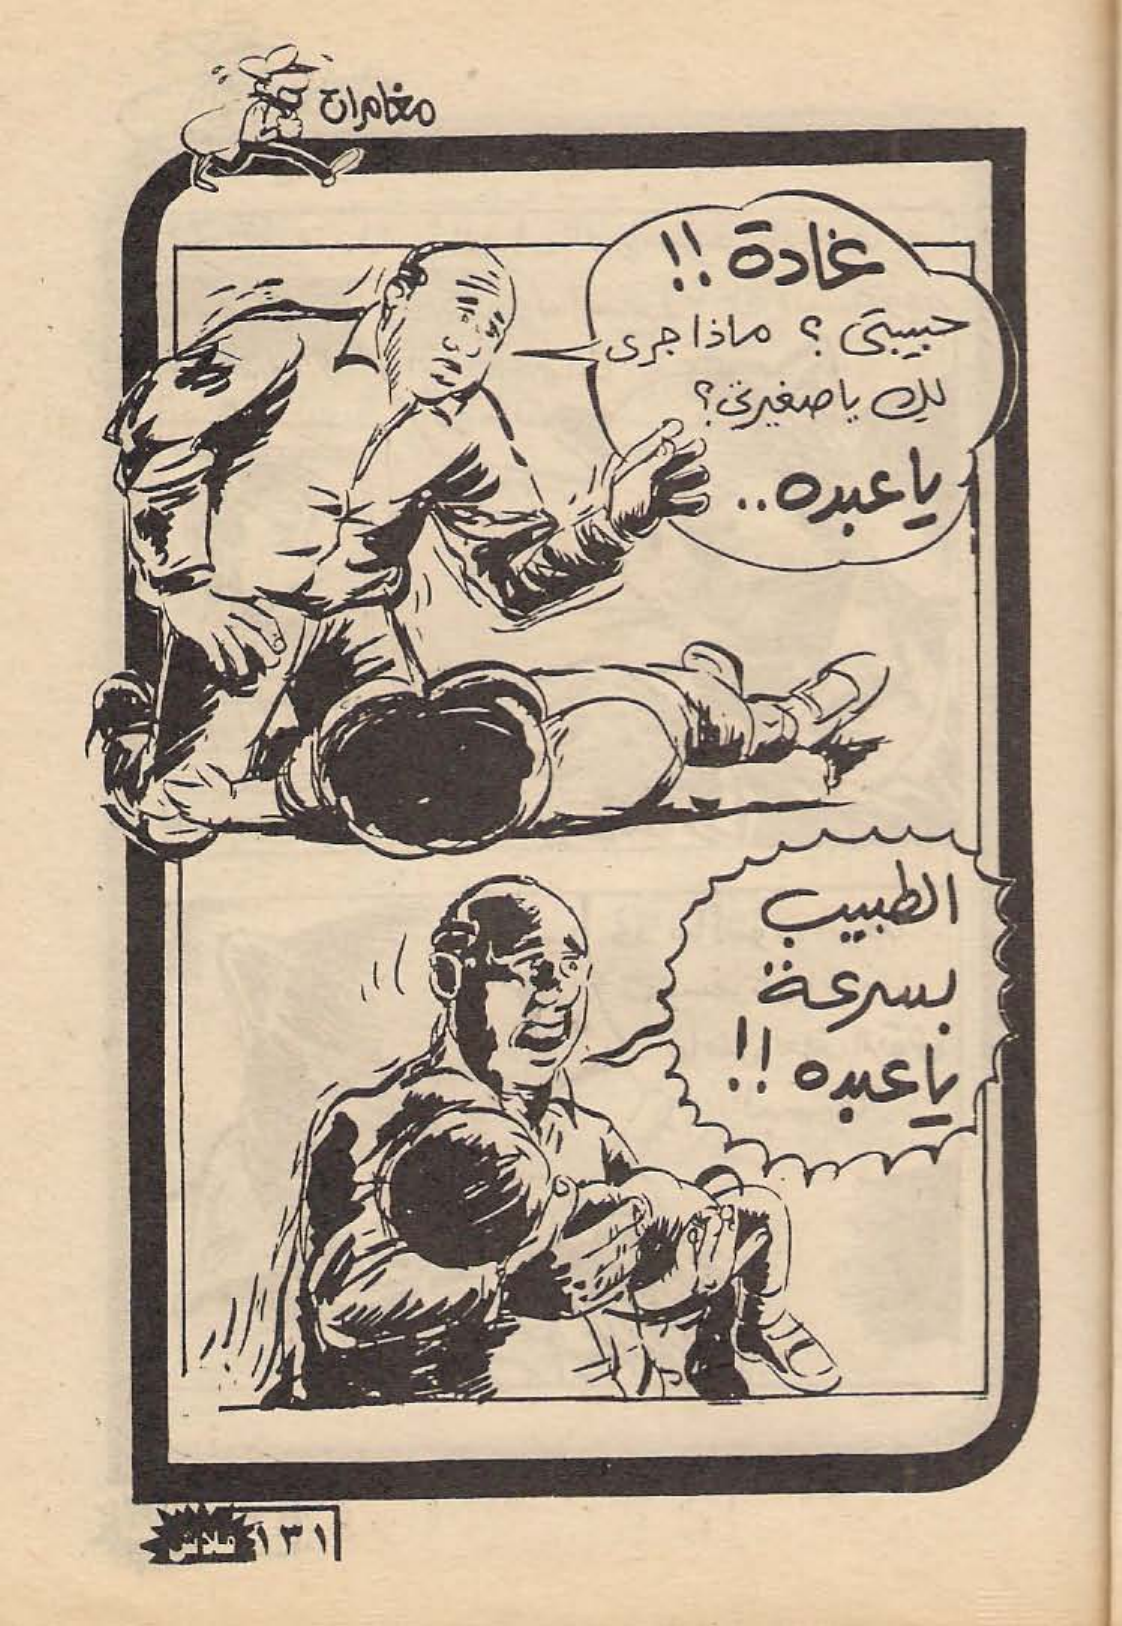 مغامرات
غادة !!
حبيبتي ؟ ماذا جرى
لك يا صغيرتي ؟
يا عبده ..
الطبيب
بسرعة
يا عبده !!
فلاش ١٣١